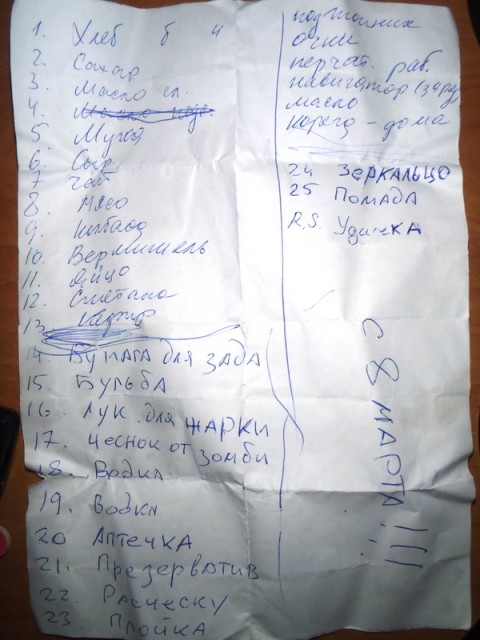 1. Хлеб б ч
2. Сахар
3. Масло сл.
4. Масло
5. Мука
6. Сыр
7 Чай
8. Мясо
9. Колбаса
10. Вермишель
11. Яйцо
12. Сметана
13.
14. Бумага для зада
15. Бульба
16. Лук для жарки
17. Чеснок от зомби
18. Водка
19. Водки
20 Аптечка
21. Презерватив
22. Расческу
23 Плойка
подшипник
очки
перчат. раб.
навигатор
масло
корего - дома
24 Зеркальцо
25 Помада
P.S. Удачка
С 8 МАРТА!!!